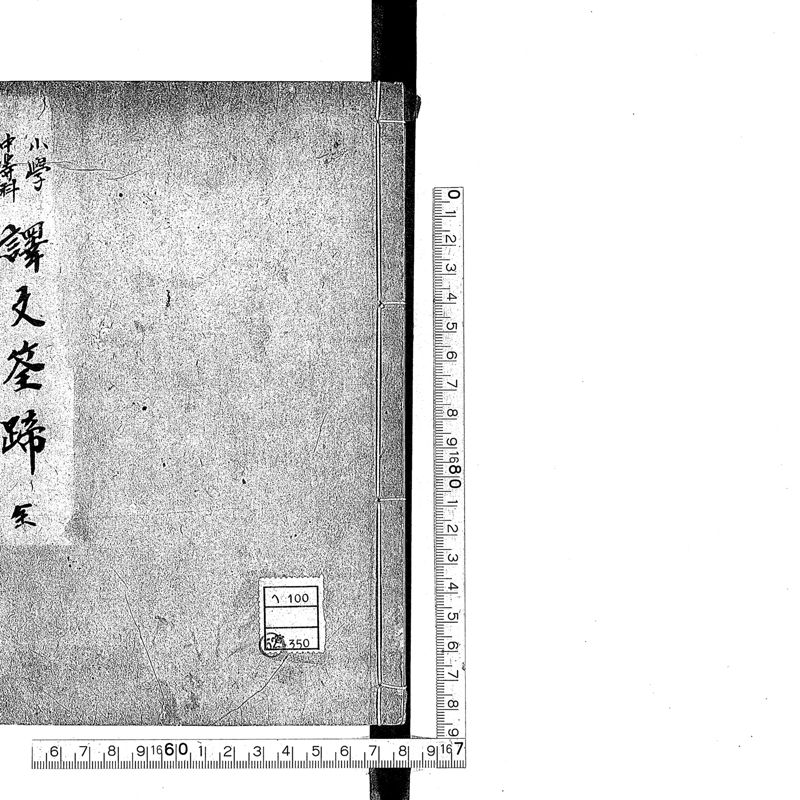 小學
中等科
譯文筌蹄
全
ヘ 100
350
0 1 2 3 4 5 6 7 8 9 16 8 0 1 2 3 4 5 6 7 8 9
6 7 8 9 16 6 0 1 2 3 4 5 6 7 8 9 16 7